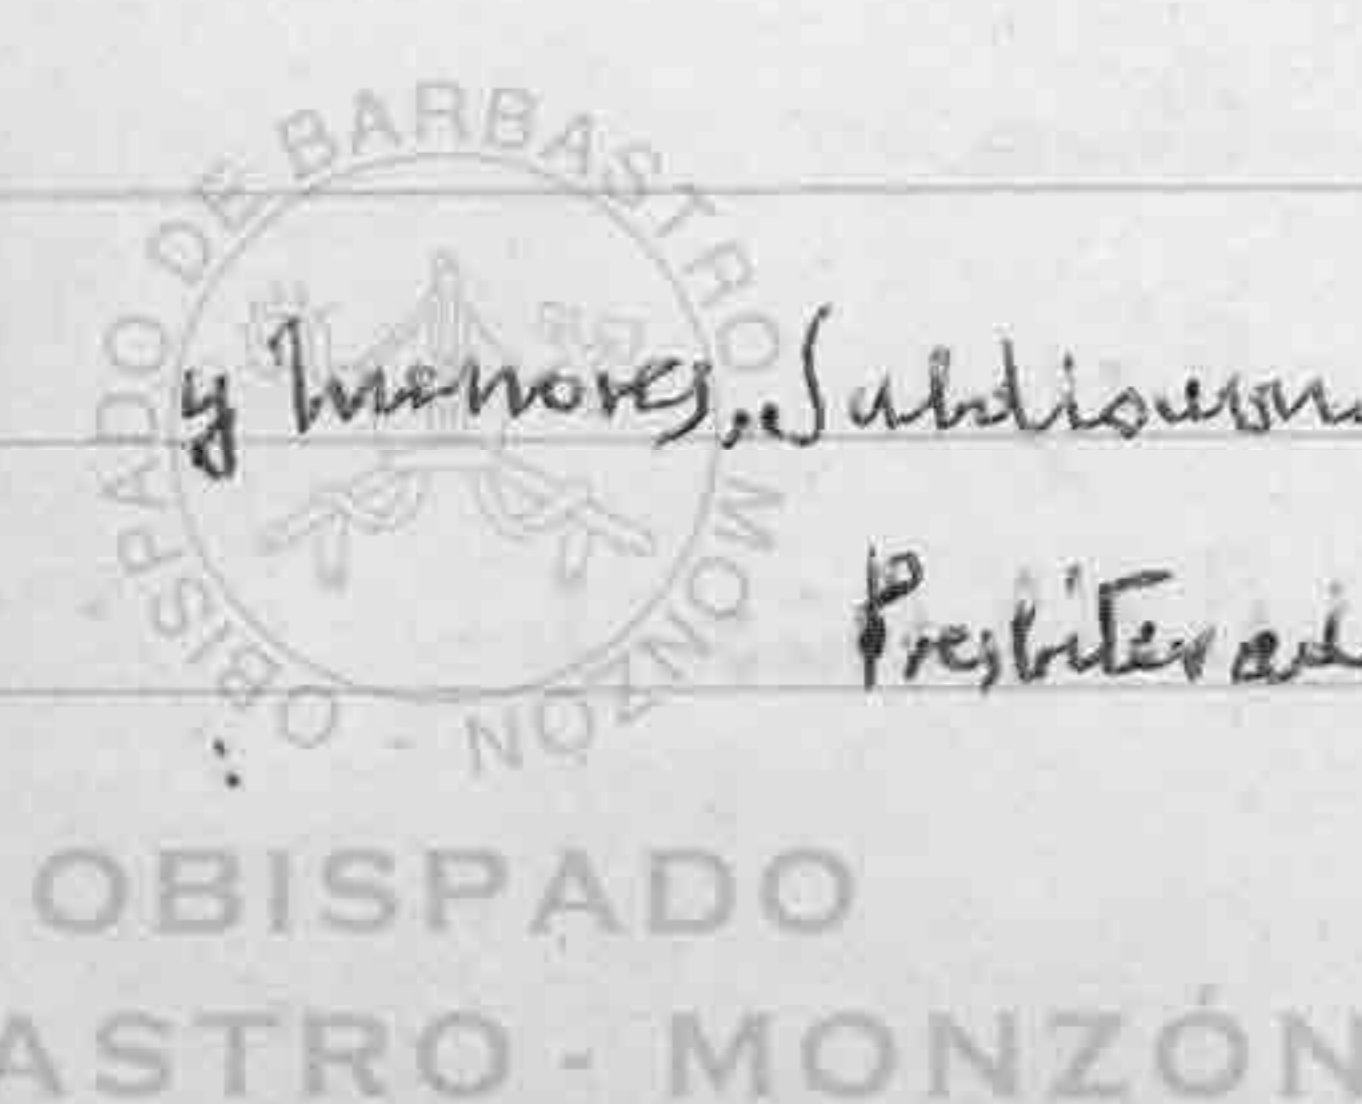 OBISPADO DE BARBASTRO MONZÓN -
y menores, Subdiacon
Presbiterad
OBISPADO
ASTRO - MONZÓN